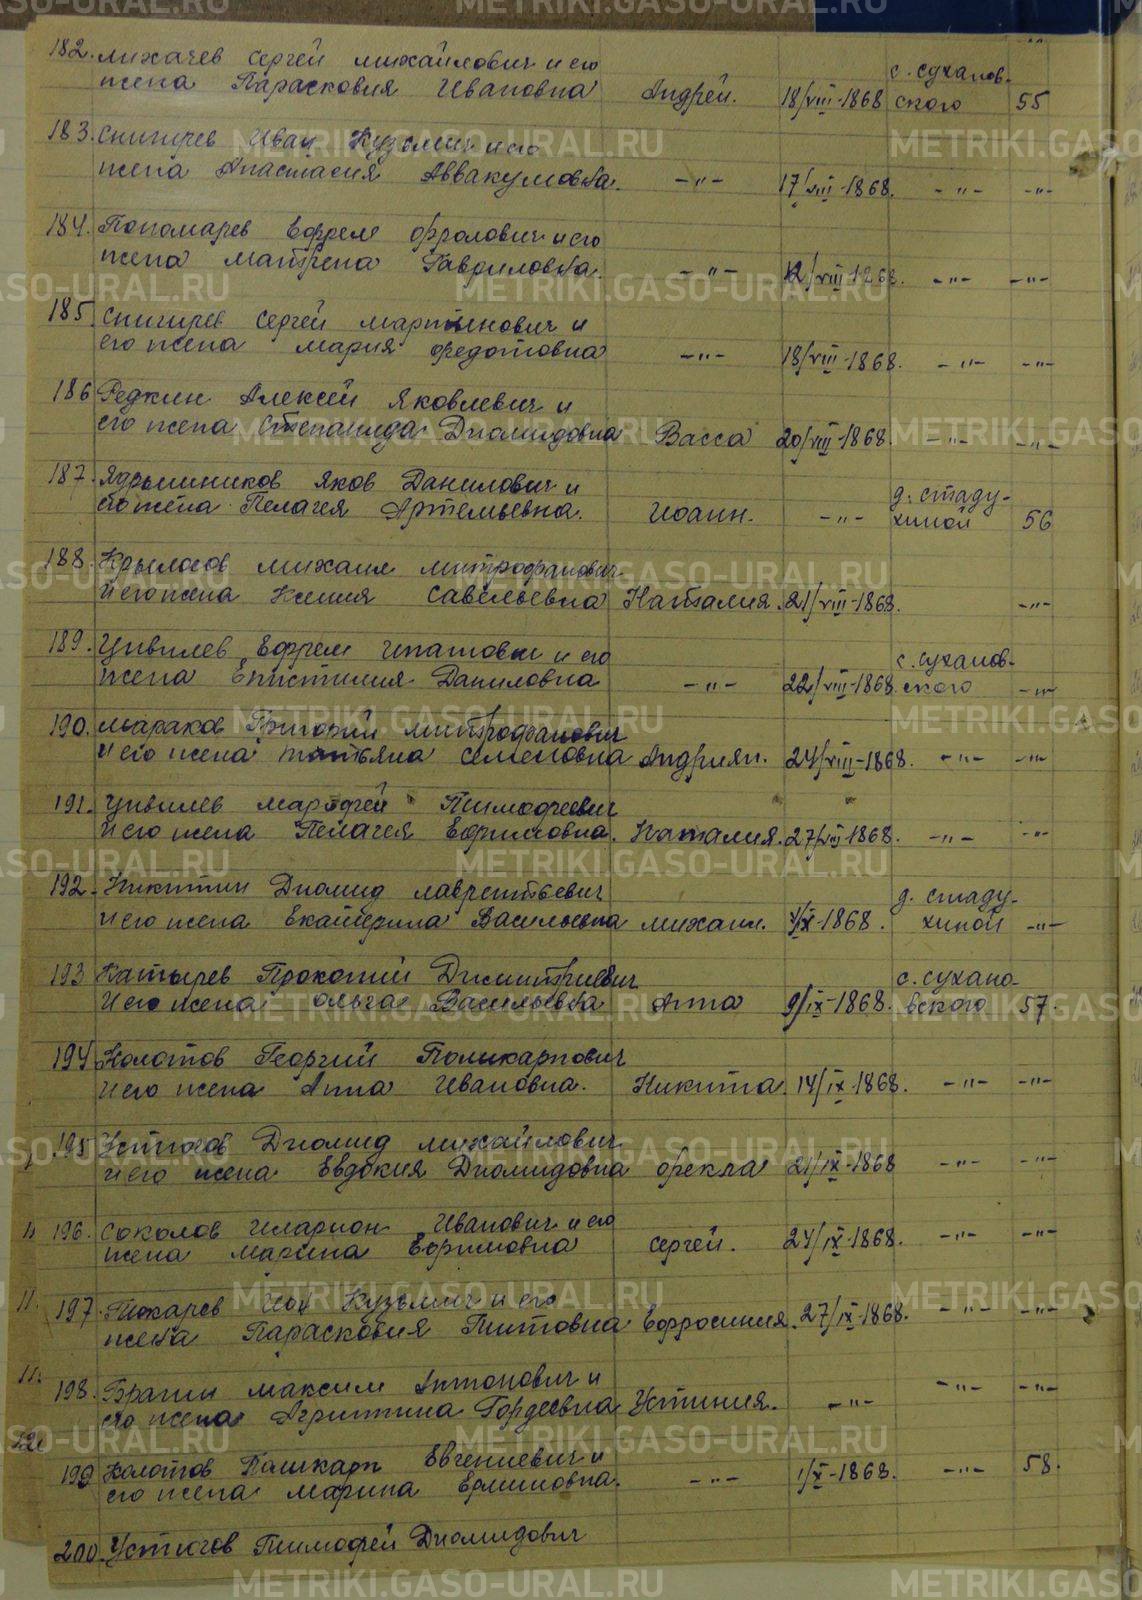 METRIKI.GASO-URAL.RU
182. Лихачев Сергей Михайлович и его
жена Парасковия Ивановна Андрей. 18/VIII-1868 с. Суханов-
ского 55
183. Снигирев Иван Кузьмич и его
жена Анастасия Аввакумовна. -"- 17/VIII-1868. -"- -"-
184. Пономарев Ефрем Фролович и его
жена Матрена Гавриловна. -"- 12/VIII-1868. -"- -"-
185. Снигирев Сергей Мартинович и
его жена Мария Федотовна -"- 18/VIII-1868. -"- -"-
186 Редкин Алексей Яковлевич и
его жена Степанида Диомидовна Васса 20/VIII-1868. -"- -"-
187. Ядрышников Яков Данилович и
его жена Пелагея Артемьевна. Иоанн. -"- д. Стаду-
хиной 56
188. Крылосов Михаил Митрофанович
и его жена Ксения Савельевна Наталия. 21/VIII-1868. -"-
189. Цивилев Ефрем Ипатович и его
жена Епистимия Даниловна -"- 22/VIII-1868. с. Суханов-
ского -"-
190. Мараков Григорий Митрофанович
и его жена Татьяна Семеновна Андриян. 24/VIII-1868. -"- -"-
191. Цивилев Марофей Тимофеевич
и его жена Пелагея Ефимовна. Наталия. 27/VIII-1868. -"- -"-
192. Никитин Диомид Лаврентьевич
и его жена Екатерина Васильевна Михаил. /IX-1868. д. Стаду-
хиной -"-
193 Катырев Прокопий Димитриевич
и его жена Ольга Васильевна Анна 9/IX-1868. с. Сухано-
вского 57.
194 Колотов Георгий Поликарпович
и его жена Анна Ивановна. Никита. 14/IX-1868. -"- -"-
195 Устюгов Диомид Михайлович
и его жена Евдокия Диомидовна Фекла 21/IX-1868 -"- -"-
11 196. Соколов Иларион Иванович и его
жена Марина Ефимовна Сергей. 24/IX-1868. -"- -"-
11. 197. Токарев Иов Кузьмич и его
жена Парасковия Титовна Ефросиния. 27/IX-1868. -"- -"-
11. 198. Брагин Максим Антонович и
его жена Агриппина Гордеевна Устиния. -"- -"- -"-
199 Колотов Поликарп Евгениевич и
его жена Марина Ермиловна. -"- 1/X-1868. -"- 58.
200. Устюгов Тимофей Диомидович